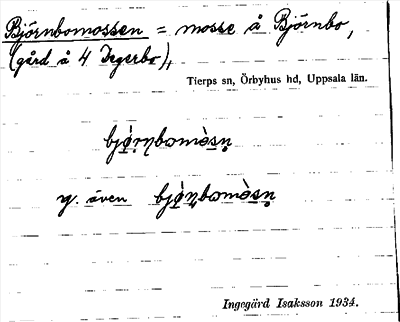 Björnbomossen = mosse å Björnbo,
(gård å 4 Tegerbo),
Tierps sn, Örbyhus hd, Uppsala län.
bjö̀rnbomòsn̥
y. även bjö̀ɳbomòsn̥
Ingegärd Isaksson 1934.